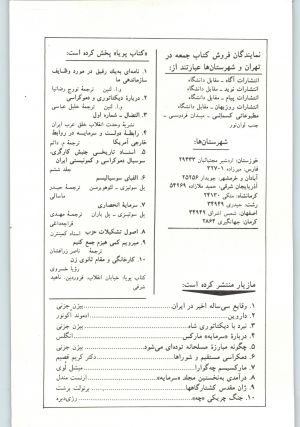 نمایندگان فروش کتاب جمعه در
تهران و شهرستان‌ها عبارتند از:
انتشارات آگاه – مقابل دانشگاه
انتشارات نوید – مقابل دانشگاه
انتشارات پیام – مقابل دانشگاه
انتشارات روزبهان – مقابل دانشگاه
مطبوعاتی کسمائی – میدان فردوسی –
جنب لوان‌تور
شهرستان‌ها:
خوزستان: اردشیر مجتبائیان ۲۹۴۳۳
فارس: میرزاده ۳۲۷۰۱
آبادان و خرمشهر: جویدار ۲۵۲۵۶
آذربایجان شرقی: حمید ملازاده ۵۴۲۶۹
کرمانشاه: متکی ۲۴۲۳۰
رشت: حیدری ۳۴۹۴۹
اصفهان: شمس اشراق ۳۴۹۴۹
کرمان: جهانگیری ۲۸۶۴
«کتاب پویا» پخش کرده است:
۱. نامه‌ای به‌یک رفیق در مورد وظایف
سازماندهی ما
و.ا. لنین ترجمهٔ تورج رضانیا
۲. دربارهٔ دیکتاتوری و دموکراسی
و.ا. لنین ترجمهٔ خلیل عباسی
۳. النضال – شماره اول
نشریهٔ وحدت انقلاب خلق عرب ایران
۴. رابطهٔ دولت و سرمایه در روابط
خارجی آمریکا ترجمهٔ م. دائم
۵. اسناد تاریخی جنبش کارگری،
سوسیال دموکراسی و کمونیستی ایران
جلد ششم
۶. الفبای سوسیالیسم
پل سوئیزی – لئوهوبرمن ترجمهٔ حیدر
ماسالی
۷. سرمایهٔ انحصاری
پل سوئیزی – پل باران ترجمهٔ مهدی
قراچه‌داغی
۸. اصول تشکیلات حزب استاد کمینترن
۹. میرویم کمی هیزم جمع کنیم
ترجمهٔ ناصر زراعتی
۱۰. کارخانگی و مقام ثانوی زن
رؤیا خسروی
کتاب پویا: خیابان انقلاب، فروردین، ناهید
شرقی
مازیار منتشر کرده است:
۱. وقایع سی‌ساله اخیر در ایران بیژن جزنی
۲. داروین ادموند اکونور
۳. نبرد با دیکتاتوری شاه بیژن جزنی
۴. دربارهٔ «سرمایه» مارکس انگلس
۵. چگونه مبارزهٔ مسلحانه توده‌ای می‌شود بیژن جزنی
۶. دموکراسی مستقیم و شوراها دکتر کریم قصیم
۷. مارکسیسم چه‌گوارا میشل لووی
۸. درآمدی به‌نخستین مجلد «سرمایه» ارنست مندل
۹. ژان مقدس کشتارگاهها برتولت برشت
۱۰. جنگ چریکی «چه» رژی‌دبره